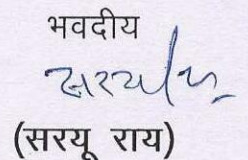 भवदीय
सरयू राय
(सरयू राय)